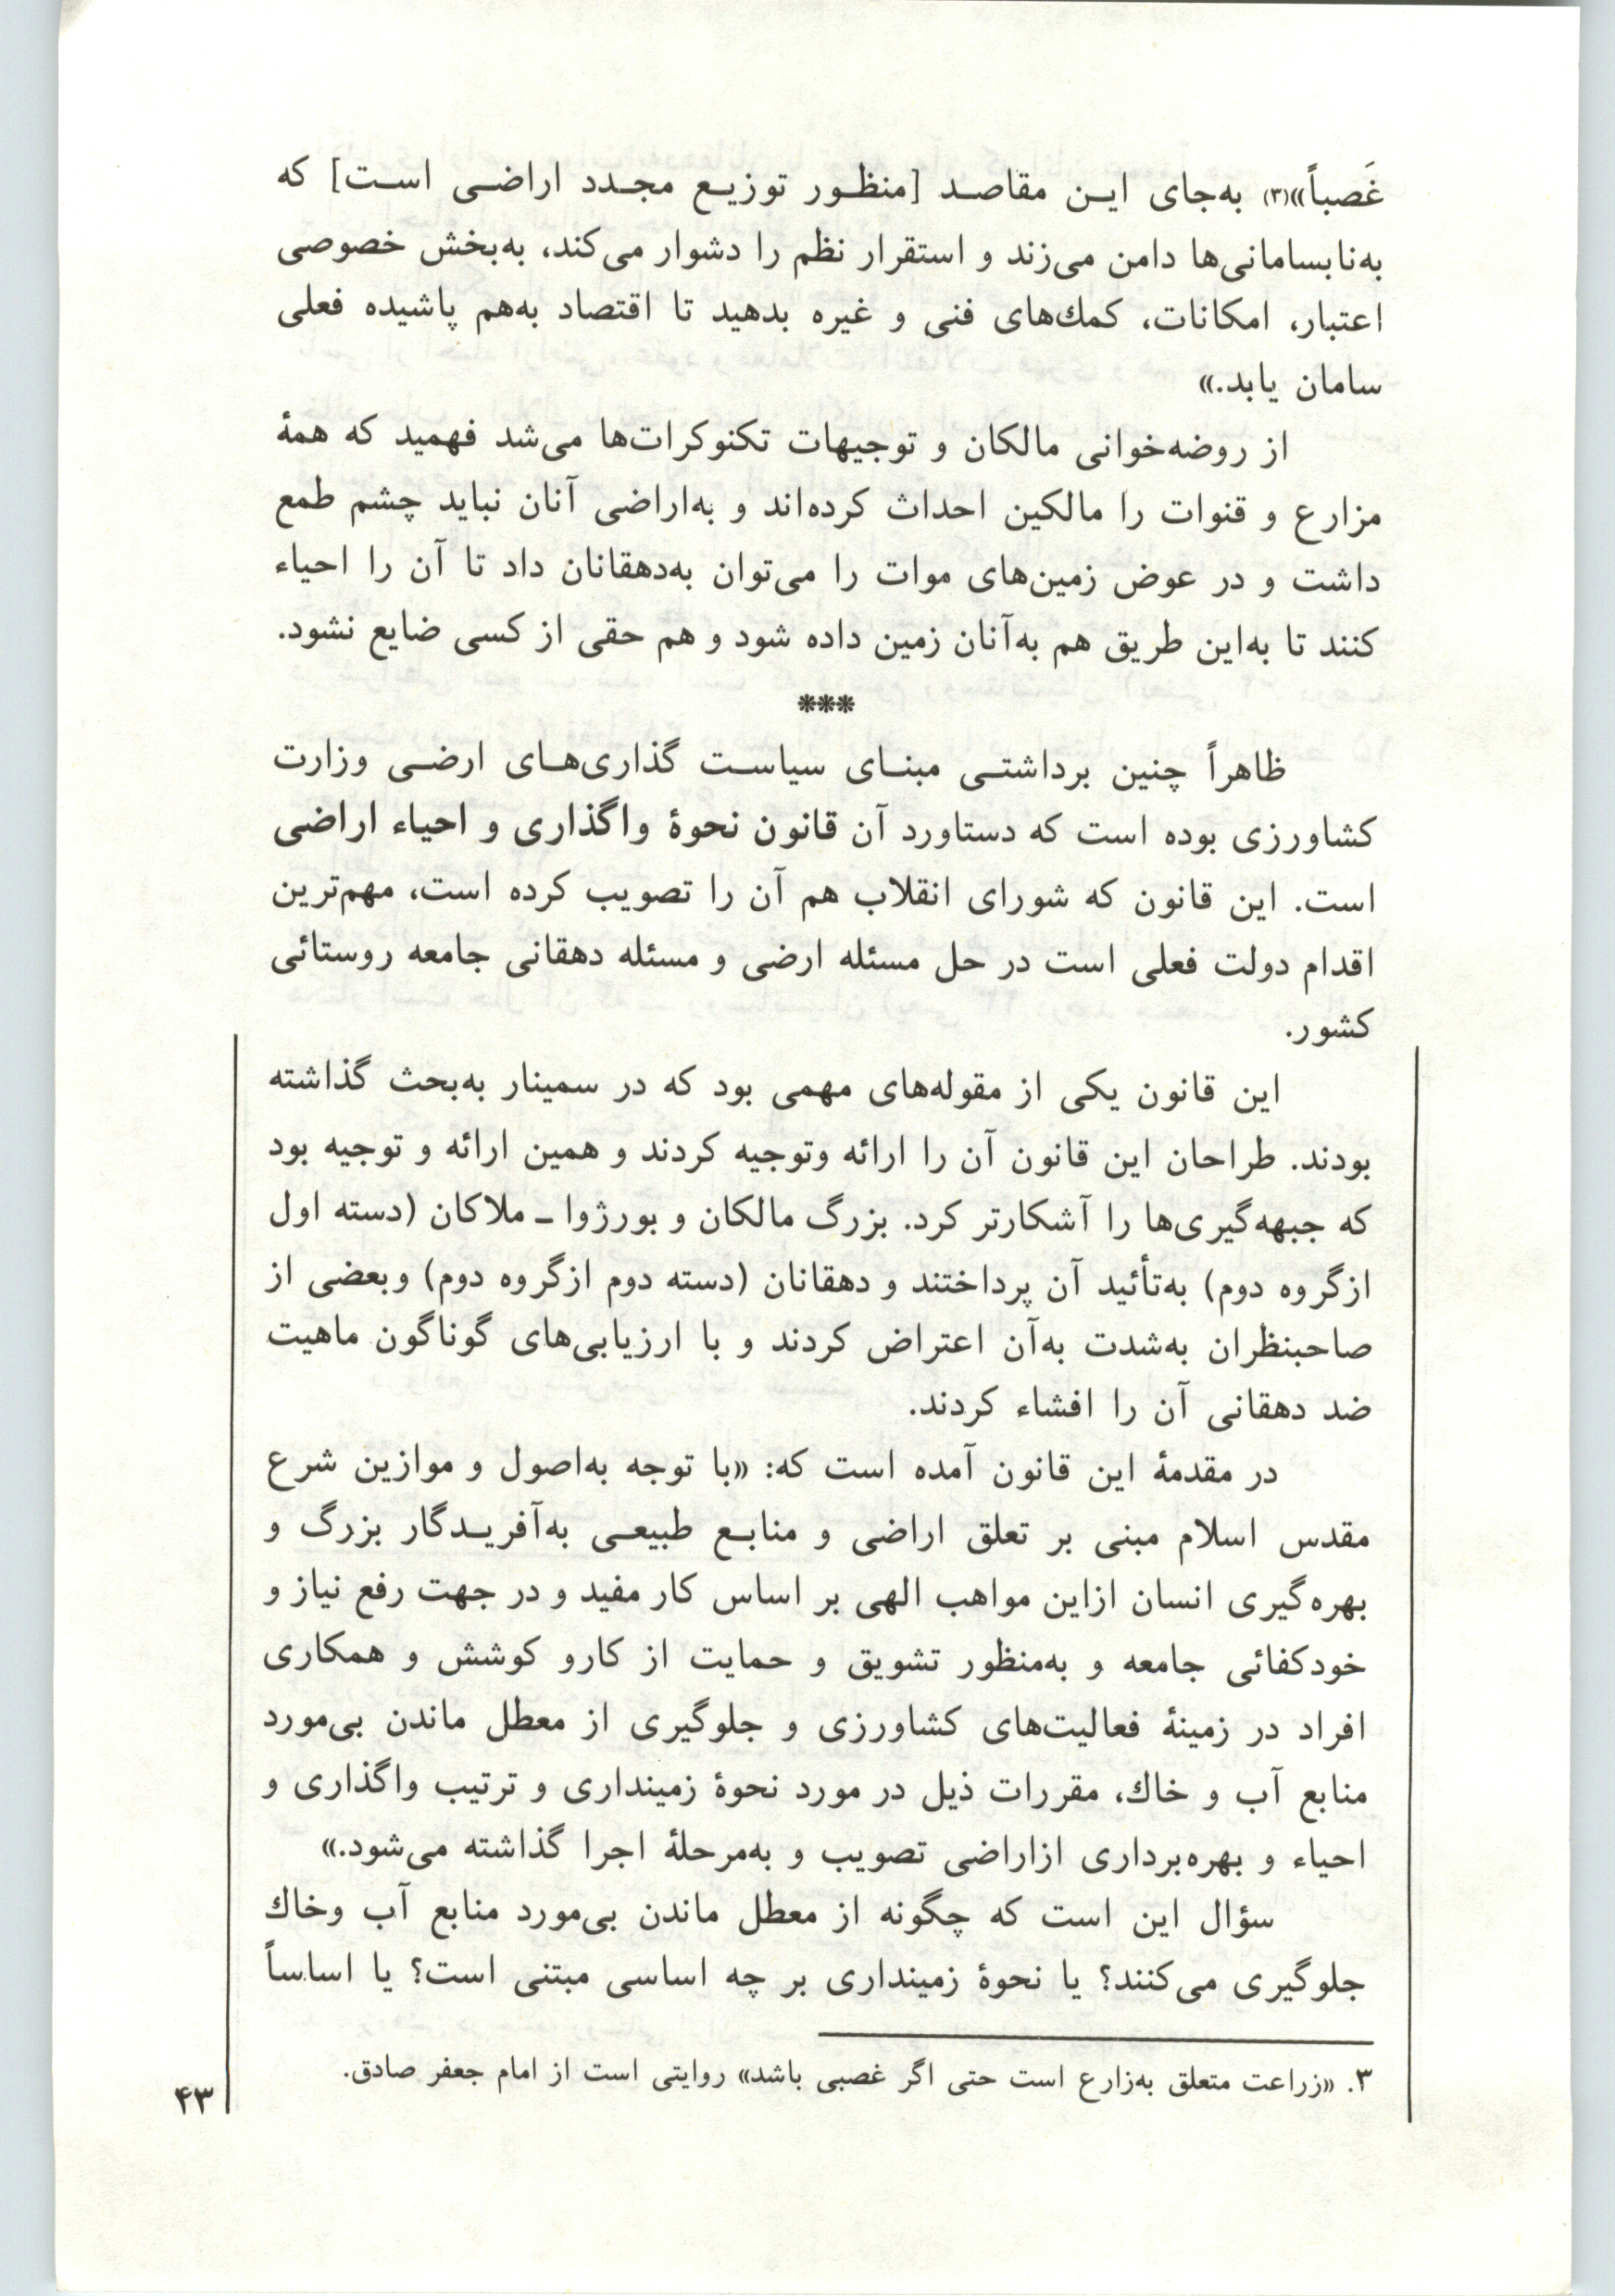 غَصباً»(۳) به‌جای ایـن مقاصـد [منظـور توزیـع مجـدد اراضـی اسـت] که
به‌نابسامانی‌ها دامن می‌زند و استقرار نظم را دشوار می‌کند، به‌بخش خصوصی
اعتبار، امکانات، کمك‌های فنی و غیره بدهید تا اقتصاد به‌هم پاشیده فعلی
سامان یابد.»
از روضه‌خوانی مالکان و توجیهات تکنوکرات‌ها می‌شد فهمید که همهٔ
مزارع و قنوات را مالکین احداث کرده‌اند و به‌اراضی آنان نباید چشم طمع
داشت و در عوض زمین‌های موات را می‌توان به‌دهقانان داد تا آن را احیاء
کنند تا به‌این طریق هم به‌آنان زمین داده شود و هم حقی از کسی ضایع نشود.
***
ظاهراً چنین برداشتـی مبنـای سیاسـت گذاری‌هـای ارضـی وزارت
کشاورزی بوده است که دستاورد آن قانون نحوهٔ واگذاری و احیاء اراضی
است. این قانون که شورای انقلاب هم آن را تصویب کرده است، مهم‌ترین
اقدام دولت فعلی است در حل مسئله ارضی و مسئله دهقانی جامعه روستائی
کشور.
این قانون یکی از مقوله‌های مهمی بود که در سمینار به‌بحث گذاشته
بودند. طراحان این قانون آن را ارائه وتوجیه کردند و همین ارائه و توجیه بود
که جبهه‌گیری‌ها را آشکارتر کرد. بزرگ مالکان و بورژوا ـ ملاکان (دسته اول
ازگروه دوم) به‌تأئید آن پرداختند و دهقانان (دسته دوم ازگروه دوم) وبعضی از
صاحبنظران به‌شدت به‌آن اعتراض کردند و با ارزیابی‌های گوناگون ماهیت
ضد دهقانی آن را افشاء کردند.
در مقدمهٔ این قانون آمده است که: «با توجه به‌اصول و موازین شرع
مقدس اسلام مبنی بر تعلق اراضی و منابـع طبیعـی به‌آفریـدگار بزرگ و
بهره‌گیری انسان ازاین مواهب الهی بر اساس کار مفید و در جهت رفع نیاز و
خودکفائی جامعه و به‌منظور تشویق و حمایت از کارو کوشش و همکاری
افراد در زمینهٔ فعالیت‌های کشاورزی و جلوگیری از معطل ماندن بی‌مورد
منابع آب و خاك، مقررات ذیل در مورد نحوهٔ زمینداری و ترتیب واگذاری و
احیاء و بهره‌برداری ازاراضی تصویب و به‌مرحلهٔ اجرا گذاشته می‌شود.»
سؤال این است که چگونه از معطل ماندن بی‌مورد منابع آب وخاك
جلوگیری می‌کنند؟ یا نحوهٔ زمینداری بر چه اساسی مبتنی است؟ یا اساساً
۳. «زراعت متعلق به‌زارع است حتی اگر غصبی باشد» روایتی است از امام جعفر صادق.
۴۳